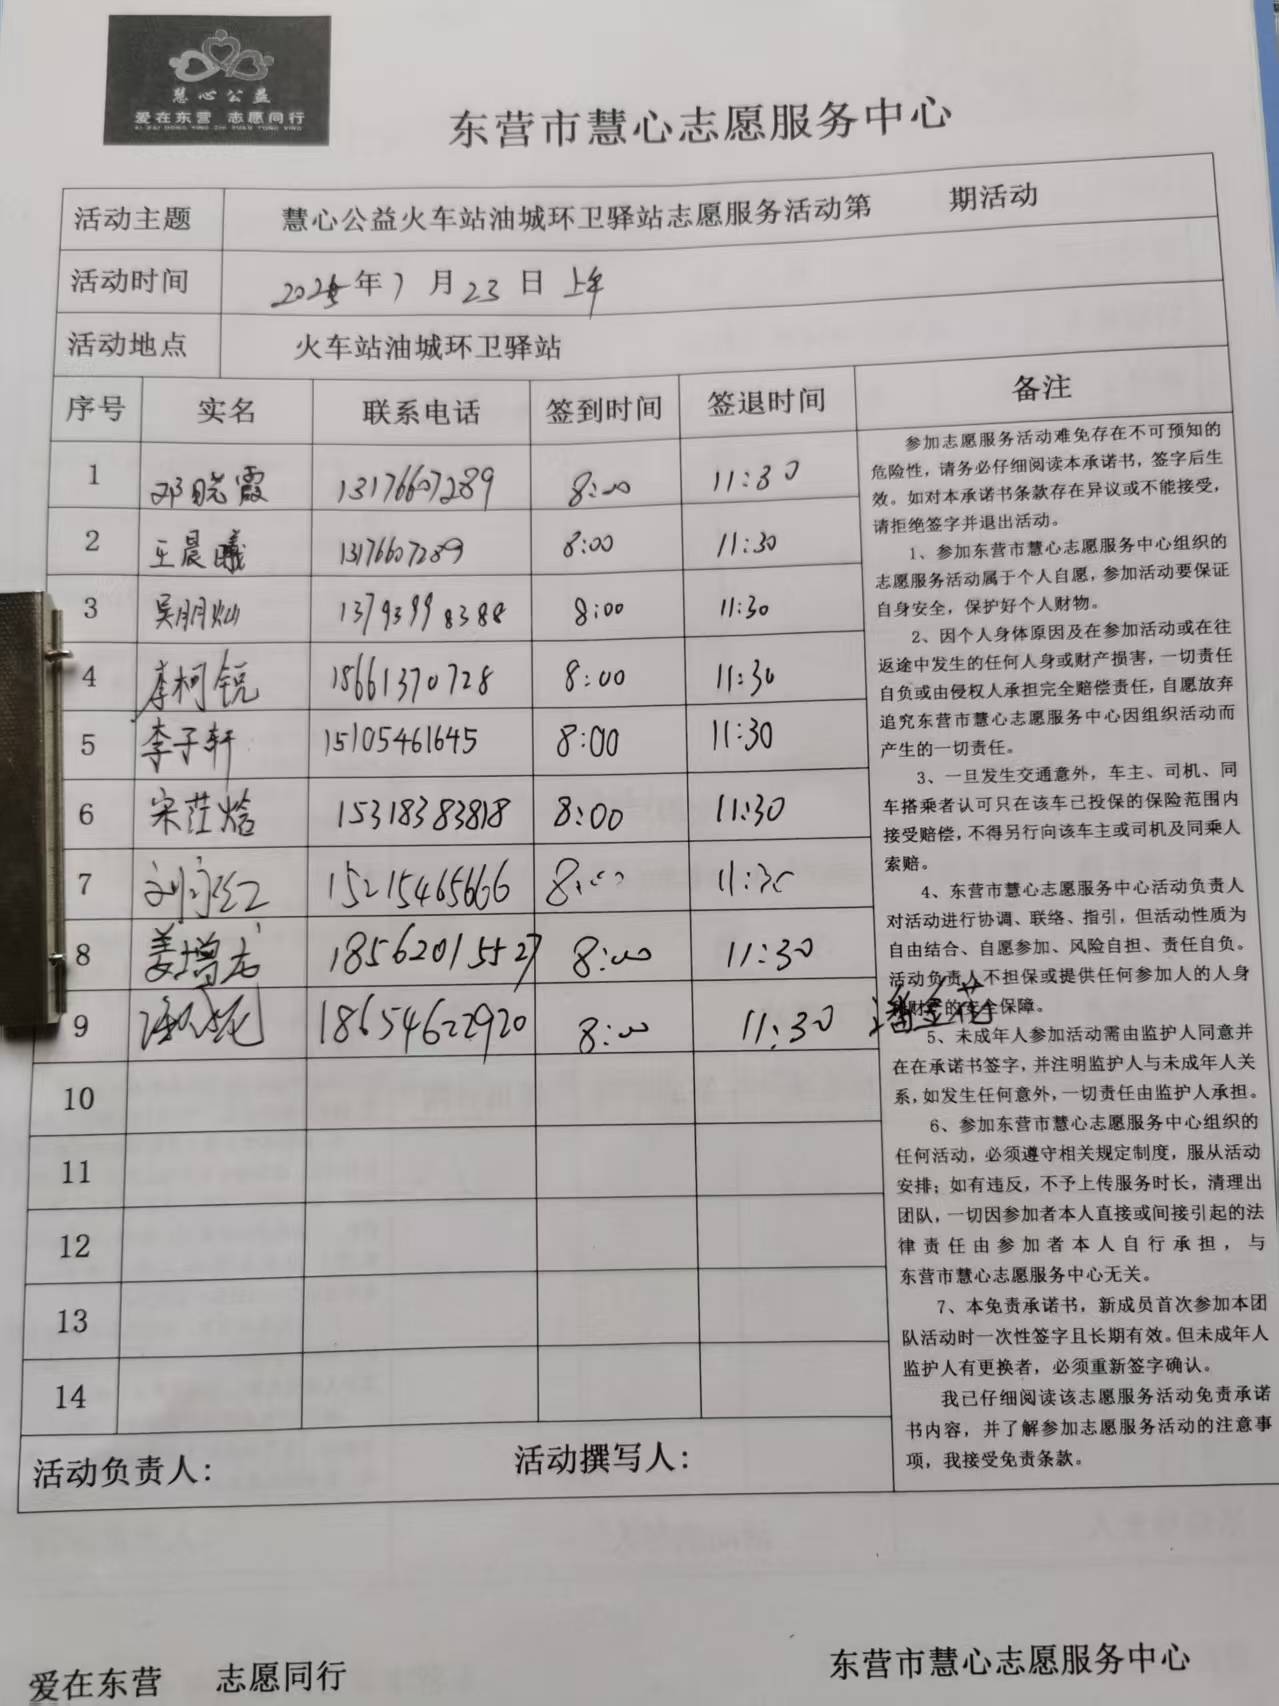 慧心公益
爱在东营 志愿同行
AI ZAI DONG YING ZHI YUAN TONG XING
东营市慧心志愿服务中心
活动主题 慧心公益火车站油城环卫驿站志愿服务活动第 期活动
活动时间 2025年7月23日 上午
活动地点 火车站油城环卫驿站
序号 实名 联系电话 签到时间 签退时间 备注
1 邓晓霞 13176607289 8:00 11:30
2 王晨曦 13176607289 8:00 11:30
3 吴朋灿 13793998388 8:00 11:30
4 李柯锐 18661370728 8:00 11:30
5 李子轩 15105461645 8:00 11:30
6 宋茳焓 15318383818 8:00 11:30
7 15215465666 8:00 11:30
8 姜增志 18562015527 8:00 11:30
9 18654622920 8:00 11:30 潘金花
10
11
12
13
14
参加志愿服务活动难免存在不可预知的
危险性，请务必仔细阅读本承诺书，签字后生
效。如对本承诺书条款存在异议或不能接受，
请拒绝签字并退出活动。
1、参加东营市慧心志愿服务中心组织的
志愿服务活动属于个人自愿，参加活动要保证
自身安全，保护好个人财物。
2、因个人身体原因及在参加活动或在往
返途中发生的任何人身或财产损害，一切责任
自负或由侵权人承担完全赔偿责任，自愿放弃
追究东营市慧心志愿服务中心因组织活动而
产生的一切责任。
3、一旦发生交通意外，车主、司机、同
车搭乘者认可只在该车已投保的保险范围内
接受赔偿，不得另行向该车主或司机及同乘人
索赔。
4、东营市慧心志愿服务中心活动负责人
对活动进行协调、联络、指引，但活动性质为
自由结合、自愿参加、风险自担、责任自负。
活动负责人不担保或提供任何参加人的人身
财产的安全保障。
5、未成年人参加活动需由监护人同意并
在在承诺书签字，并注明监护人与未成年人关
系，如发生任何意外，一切责任由监护人承担。
6、参加东营市慧心志愿服务中心组织的
任何活动，必须遵守相关规定制度，服从活动
安排；如有违反，不予上传服务时长，清理出
团队，一切因参加者本人直接或间接引起的法
律责任由参加者本人自行承担，与
东营市慧心志愿服务中心无关。
7、本免责承诺书，新成员首次参加本团
队活动时一次性签字且长期有效。但未成年人
监护人有更换者，必须重新签字确认。
我已仔细阅读该志愿服务活动免责承诺
书内容，并了解参加志愿服务活动的注意事
项，我接受免责条款。
活动负责人： 活动撰写人：
爱在东营 志愿同行 东营市慧心志愿服务中心